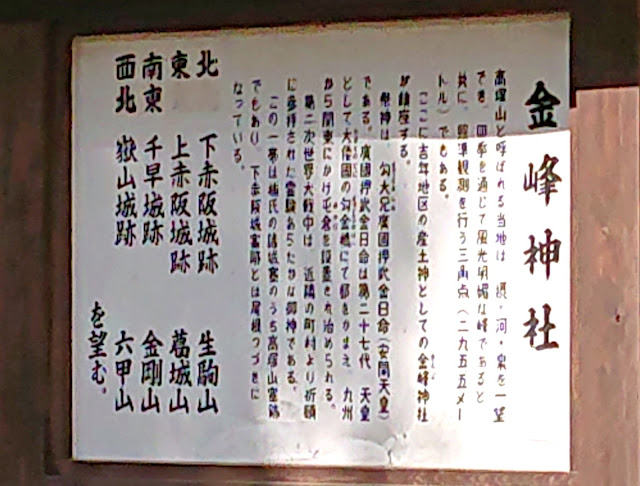 金峰神社
高塚山と呼ばれる当地は、摂・河・泉を一望
でき、四季を通じて風光明媚な峰であると
共に、照準観測を行う三角点(二九五五メー
トル)でもある。
ここに吉年地区の産土神としての金峰神社
が鎮座する。
祭神は、勾大兄廣國押武金日命(安閑天皇)
である。廣國押武金日命は第二十七代 天皇
として大倭國の勾金橋にて都をかまえ、九州
から関東にかけ屯倉を設置され治められる。
第二次世界大戦中は、近隣の町村より祈願
に参拝された霊験あらたかな御神である。
この一帯は楠氏の諸城塞のうち高塚山塞跡
でもあり、下赤阪城塞跡とは尾根つづきに
なっている。
北 下赤阪城跡 生駒山
東 上赤阪城跡 葛城山
南東 千早城跡 金剛山
西北 嶽山城跡 六甲山
を望む。